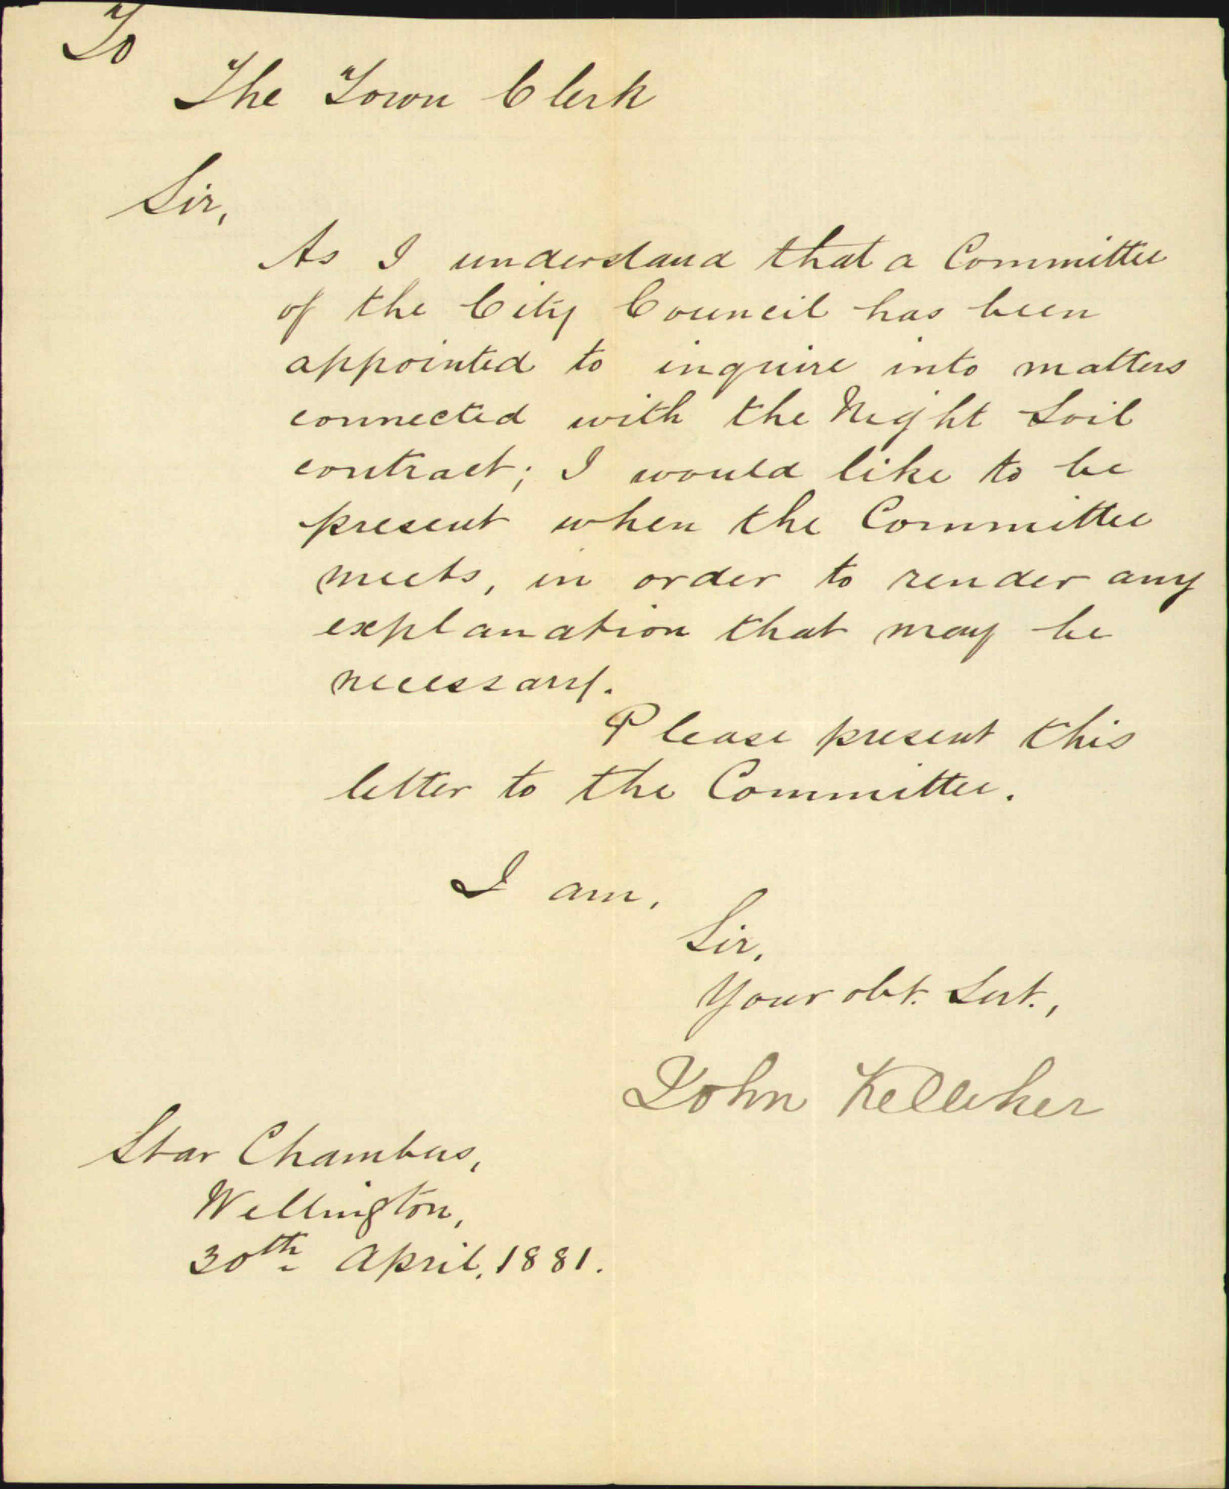 To
The Town Clerk
Sir,
As I understand that a Committee
of the City Council has been
appointed to inquire into matters
connected with the Night Soil
contract; I would like to be
present when the Committee
meets, in order to render any
explanation that may be
necessary.
Please present this
letter to the Committee.
I am,
Sir,
Your obt. Sert.,
John Kelleher
Star Chambers,
Wellington,
30th April, 1881.